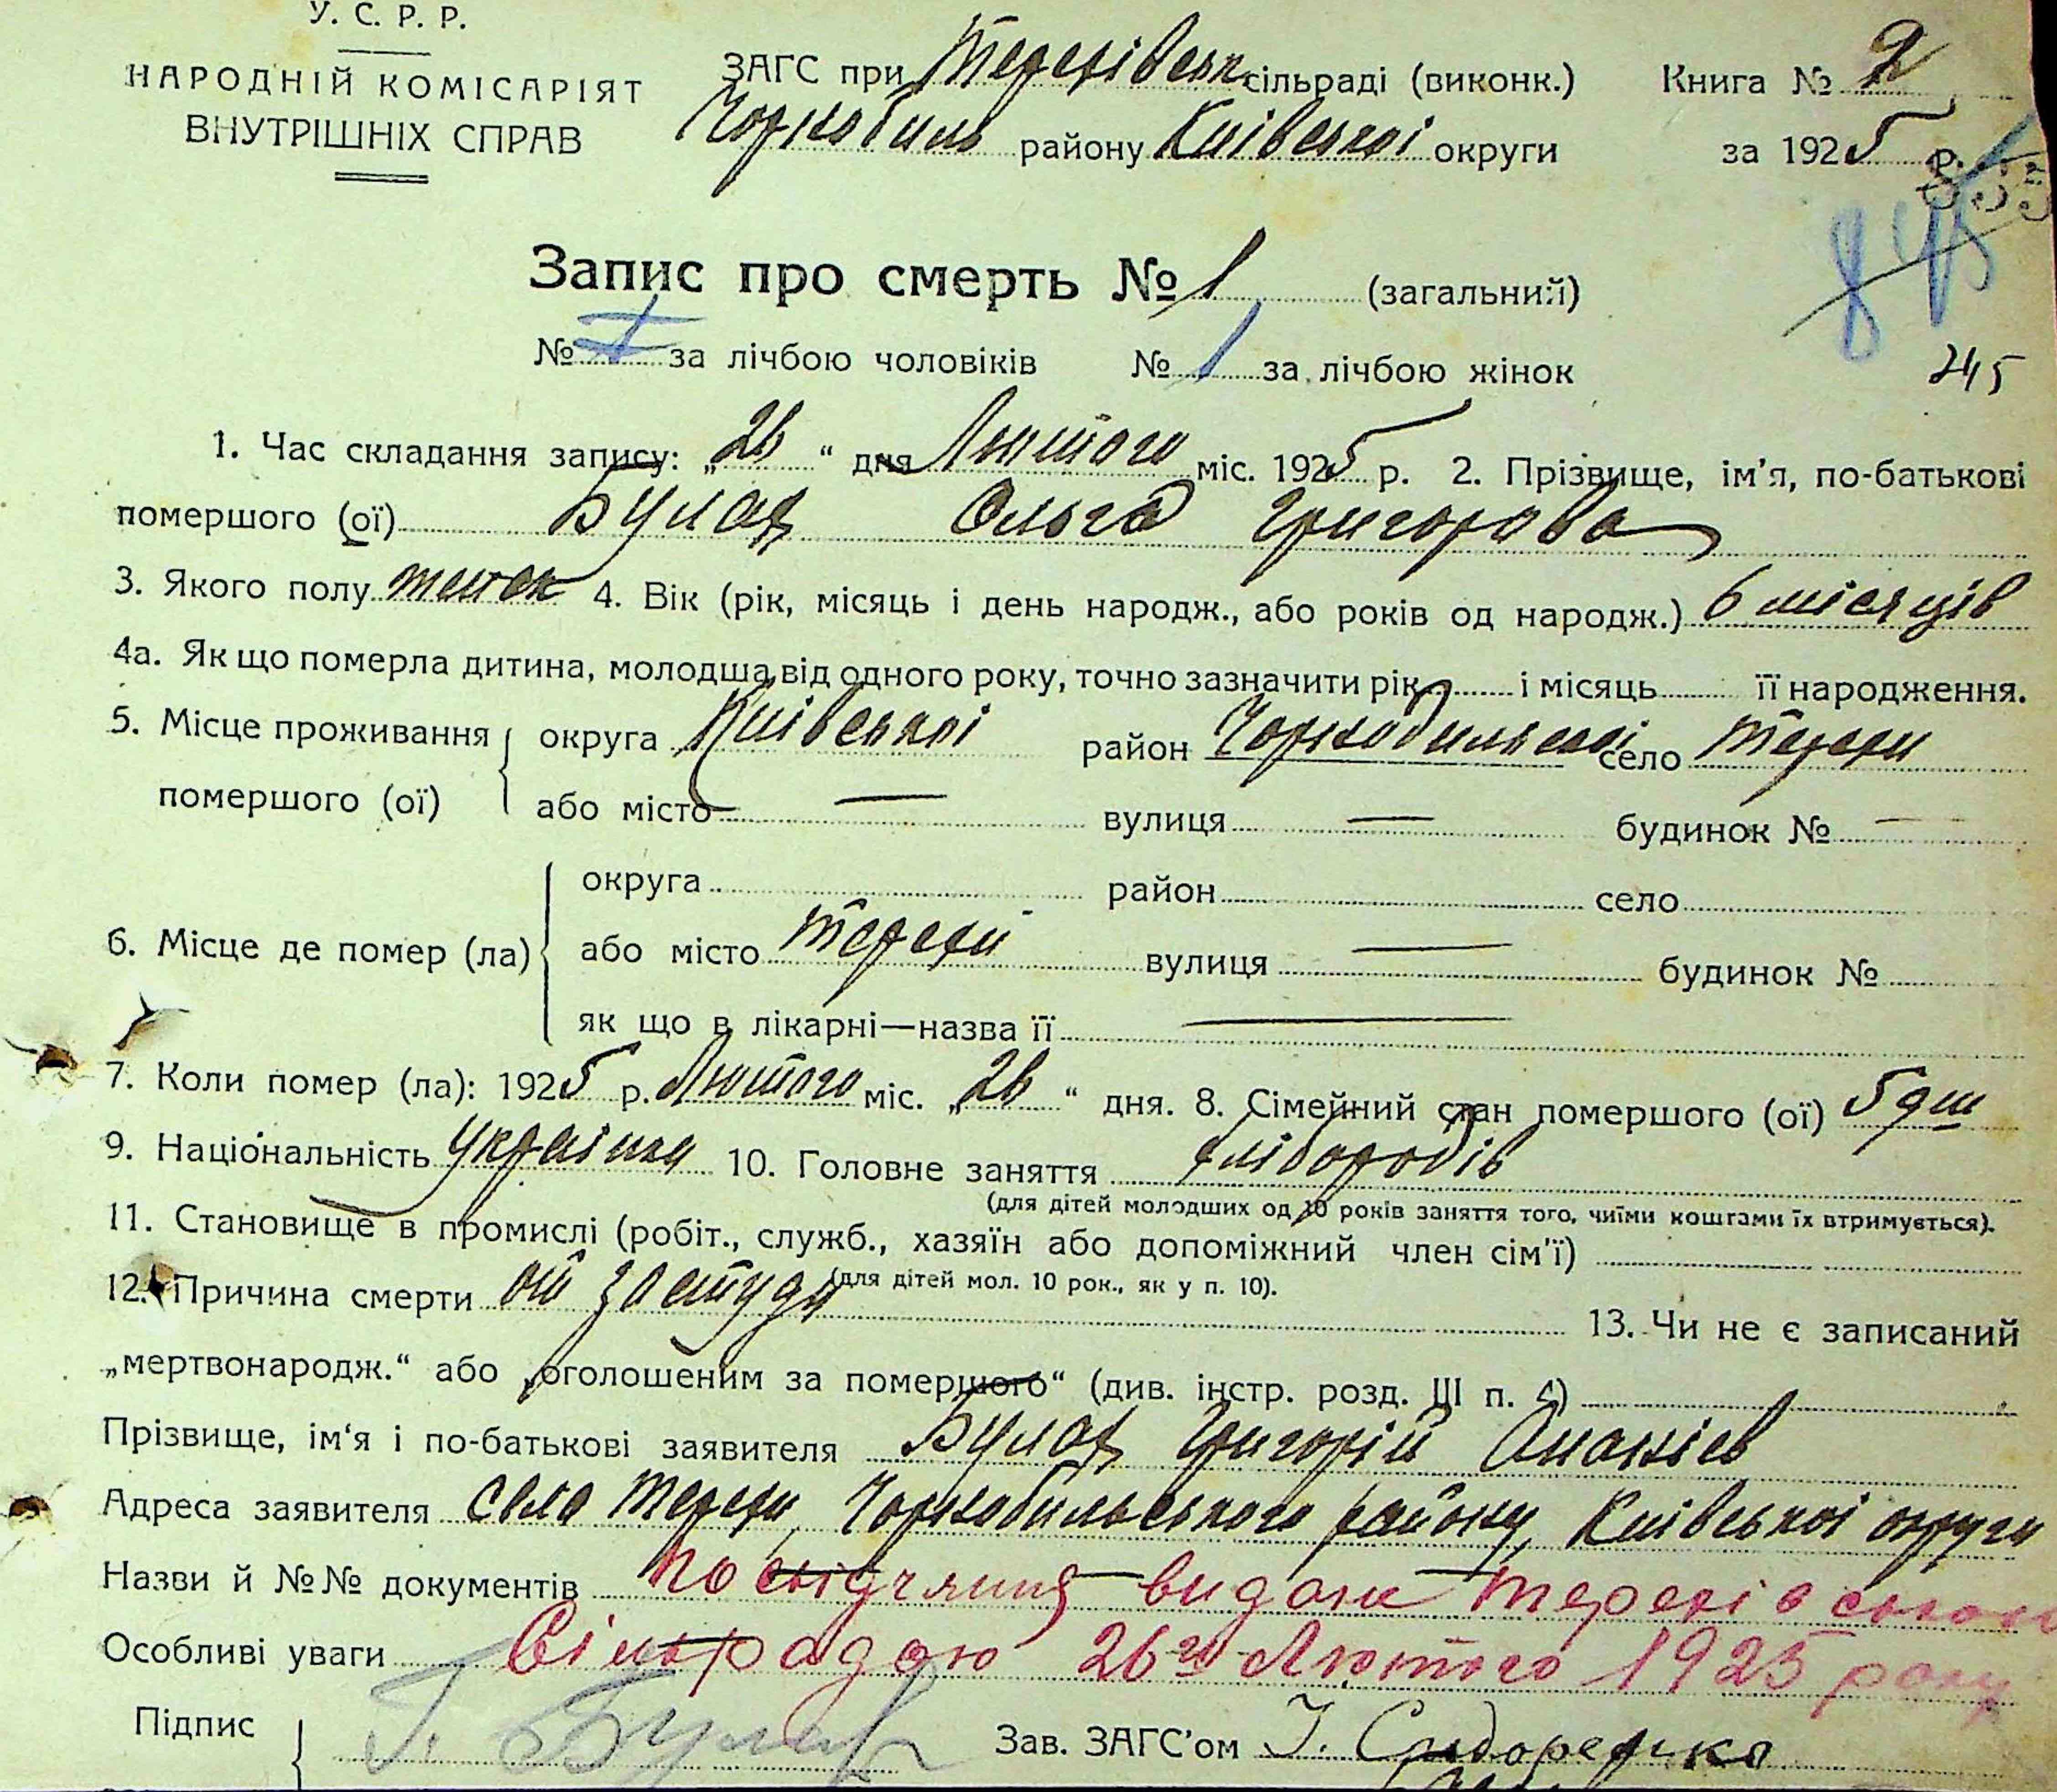 У. С. Р. Р.
НАРОДНІЙ КОМІСАРІЯТ
ВНУТРІШНІХ СПРАВ
ЗАГС при Терехівськ сільраді (виконк.)
Чорнобиль району Київської округи
Книга № 2
за 1925 р.
845
245
Запис про смерть № 1 (загальний)
№ за лічбою чоловіків № 1 за лічбою жінок
1. Час складання запису: „26“ дня Лютого міс. 1925 р. 2. Прізвище, ім'я, по-батькові
помершого (ої) Булах Ольга Григорова
3. Якого полу женск 4. Вік (рік, місяць і день народж., або років од народж.) 6 місяців
4а. Як що померла дитина, молодша від одного року, точно зазначити рік і місяць її народження.
5. Місце проживання помершого (ої) округа Київської район Чорнобильськ село Терехи
або місто — вулиця — будинок № —
6. Місце де помер (ла) округа район село
або місто Терехи вулиця — будинок №
як що в лікарні—назва її —
7. Коли помер (ла): 1925 р. Лютого міс. „26“ дня. 8. Сімейний стан помершого (ої) 5 душ
9. Національність Українка 10. Головне заняття хліборобів
(для дітей молодших од 10 років заняття того, чиїми коштами їх втримується).
11. Становище в промислі (робіт., служб., хазяїн або допоміжний член сім'ї)
(для дітей мол. 10 рок., як у п. 10).
12. Причина смерти от застуди 13. Чи не є записаний
„мертвонародж.“ або „оголошеним за помершого“ (див. інстр. розд. III п. 4)
Прізвище, ім'я і по-батькові заявителя Булах Григорій Ананіев
Адреса заявителя село Терехи, Чорнобильського району, Київської округи
Назви й №№ документів посвідчення видане Терехівською
Особливі уваги Сільрадою 26го Лютого 1925 року
Підпис Г. Булах Зав. ЗАГС'ом І. Сидоренко